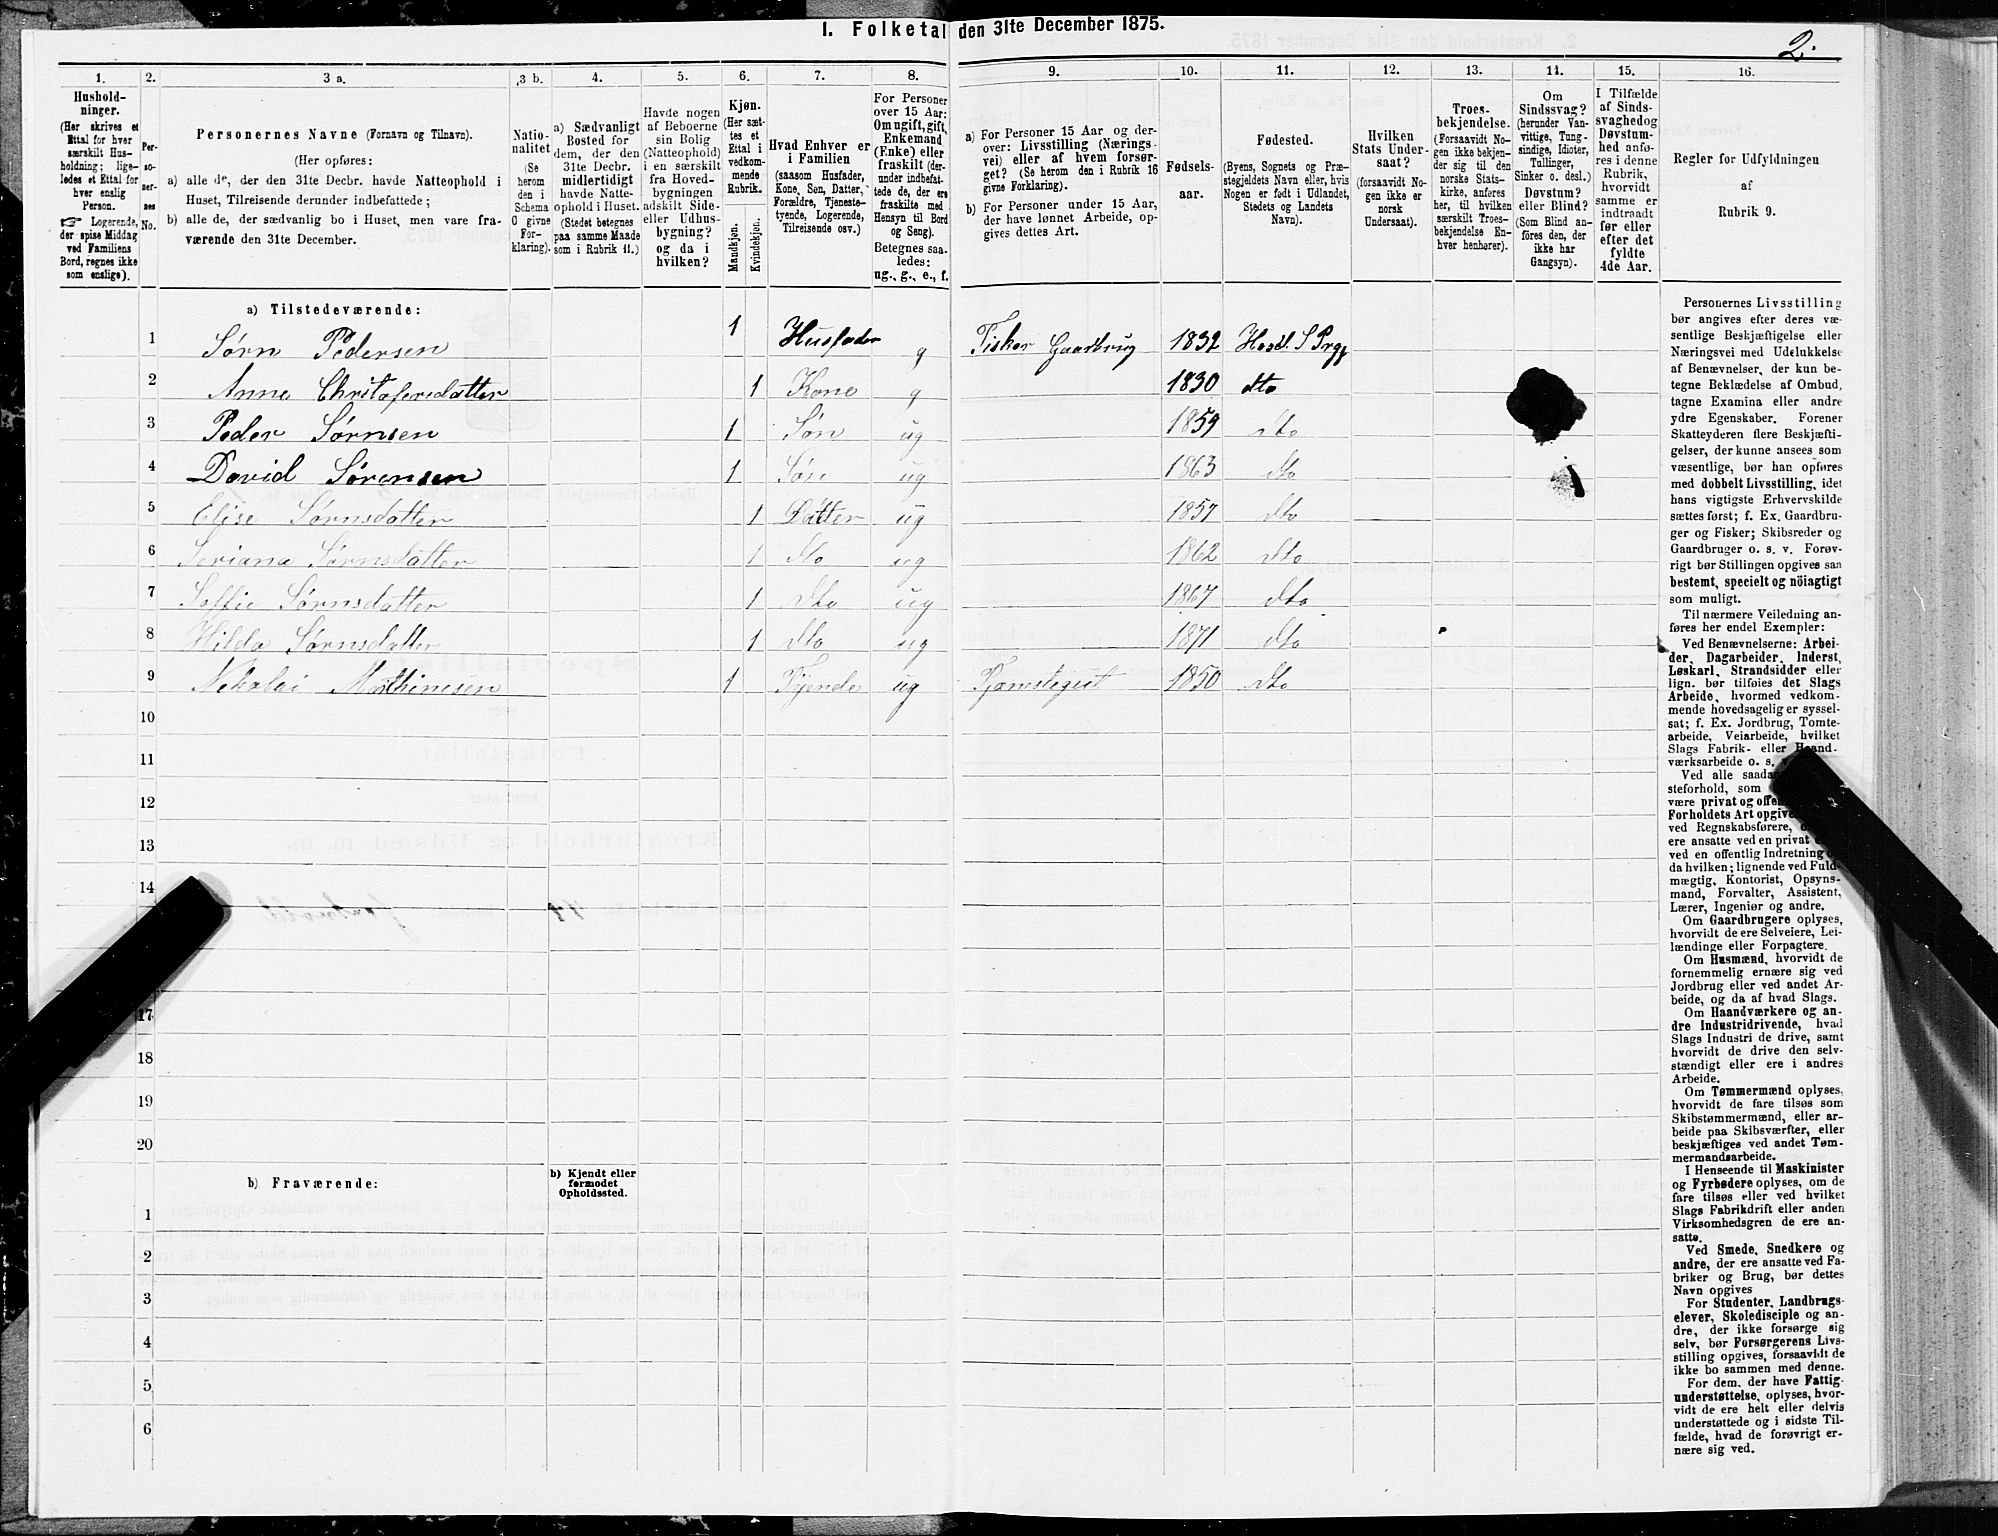 I. Folketal den 31te December 1875.
2.
1. 2. 3 a. 3 b. 4. 5. 6. 7. 8. 9. 10. 11. 12. 13. 14. 15. 16.
Hushold-
ninger.
(Her skrives et
Ettal for hver
særskilt Hus-
holdning; lige-
ledes et Ettal for
hver enslig
Person.
☞ Logerende,
der spise Middag
ved Familiens
Bord, regnes ikke
som enslige).
Per-
so-
ner-
nes
No.
Personernes Navne (Fornavn og Tilnavn).
(Her opføres:
a) alle de, der den 31te Decbr. havde Natteophold i
Huset, Tilreisende derunder indbefattede;
b) alle de, der sædvanlig bo i Huset, men vare fra-
værende den 31te December.
Natio-
nalitet
(Se
herom
den i
Schema
O givne
For-
klaring).
a) Sædvanligt
Bosted for
dem, der den
31te Decbr.
midlertidigt
havde Natte-
ophold i Huset.
(Stedet betegnes
paa samme Maade
som i Rubrik 11.)
Havde nogen
af Beboerne
sin Bolig
(Natteophold)
i en særskilt
fra Hoved-
bygningen
adskilt Side-
eller Udhus-
bygning?
og da i
hvilken?
Kjøn.
(Her sæt-
tes et
Ettal i
vedkom-
mende
Rubrik.
Mandkjøn.
Kvindekjøn.
Hvad Enhver er
i Familien
(saasom Husfader,
Kone, Søn, Datter,
Forældre, Tjeneste-
tyende, Logerende,
Tilreisende osv.)
For Personer
over 15 Aar:
Om ugift, gift,
Enkemand
(Enke) eller
fraskilt (der-
under indbefat-
tede de, der ere
fraskilte med
Hensyn til Bord
og Seng).
Betegnes saa-
ledes:
ug., g., e., f.
a) For Personer 15 Aar og der-
over: Livsstilling (Nærings-
vei) eller af hvem forsør-
get? (Se herom den i Rubrik 16
givne Forklaring).
b) For Personer under 15 Aar,
der have lønnet Arbeide, op-
gives dettes Art.
Fødsels-
aar.
Fødested.
(Byens, Sognets og Præ-
stegjeldets Navn eller, hvis
Nogen er født i Udlandet,
Stedets og Landets
Navn).
Hvilken
Stats Under-
saat?
(forsaavidt No-
gen ikke er
norsk
Undersaat).
Troes-
bekjendelse.
(Forsaavidt No-
gen ikke bekjen-
der sig til den
norske Stats-
kirke, anføres
her, til hvilken
særskilt Troes-
bekjendelse En-
hver henhører).
Om
Sindssvag?
(herunder Van-
vittige, Tung-
sindige, Idioter,
Tullinger,
Sinker o. desl.)
Døvstum?
eller Blind?
(Som Blind an-
føres den, der
ikke har
Gangsyn).
I Tilfælde
af Sinds-
svaghed og
Døvstum-
hed anfø-
res i denne
Rubrik,
hvorvidt
samme er
indtraadt
før eller
efter det
fyldte
4de Aar.
Regler for Udfyldningen
af
Rubrik 9.
a) Tilstedeværende:
1 Sørn Pedersen 1 Husfader g Fisker Gaardbrug 1832
2 Anne Christofersdatter 1 Kone g 1830 dto
3 Peder Sørnsen 1 Søn ug 1859 dto
4 David Sørensen 1 Søn ug 1863 dto
5 Elise Sørnsdatter 1 Datter ug 1857 dto
6 Seriana Sørnsdatter 1 dto ug 1862 dto
7 Soffie Sørnsdatter 1 dto ug 1867 dto
8 Hilda Sørnsdatter 1 dto ug 1871 dto
9 Nikolai Mathinesen 1 Tjende ug Tjænstegut 1850 dto
10
11
12
13
14
17
18
19
20
b) Fraværende:
b) Kjendt eller
formodet
Opholdssted.
1
2
3
4
5
6
Personernes Livsstilling
bør angives efter deres væ-
sentlige Beskjæftigelse eller
Næringsvei med Udelukkelse
af Benævnelser, der kun be-
tegne Beklædelse af Ombud,
tagne Examina eller andre
ydre Egenskaber. Forener
Skatteyderen flere Beskjæfti-
gelser, der kunne ansees som
væsentlige, bør han opføres
med dobbelt Livsstilling, idet
hans vigtigste Erhvervskilde
sættes først; f. Ex. Gaardbru-
ger og Fisker; Skibsreder og
Gaardbruger o. s. v. Forøv-
rigt bør Stillingen opgives saa
bestemt, specielt og nöiagtigt
som muligt.
Til nærmere Veiledning an-
føres her endel Exempler:
Ved Benævnelserne: Arbei-
der, Dagarbeider, Inderst,
Løskarl, Strandsidder eller
lign. bør tilføies det Slags
Arbeide, hvormed vedkom-
mende hovedsagelig er syssel-
sat; f. Ex. Jordbrug, Tomte-
arbeide, Veiarbeide, hvilket
Slags Fabrik- eller Haand-
værksarbeide o. s.
Ved alle
steforhold, som
være privat og
Forholdets Art
ved Regnskabsførere,
ere ansatte ved en privat
ved en offentlig Indretning
da hvilken; lignende ved Fuld-
mægtig, Kontorist, Opsyns-
mand, Forvalter, Assistent,
Lærer, Ingeniør og andre.
Om Gaardbrugere oplyses,
hvorvidt de ere Selveiere, Lei-
lændinge eller Forpagtere.
Om Husmænd, hvorvidt de
fornemmelig ernære sig ved
Jordbrug eller ved andet Ar-
beide, og da af hvad Slags.
Om Haandværkere og an-
dre Industridrivende, hvad
Slags Industri de drive, samt
hvorvidt de drive den selv-
stændigt eller ere i andres
Arbeide.
Om Tømmermænd oplyses,
hvorvidt de fare tilsøs som
Skibstømmermænd, eller ar-
beide paa Skibsværfter, eller
beskjæftiges ved andet Tøm-
mermandsarbeide.
I Henseende til Maskinister
og Fyrbødere oplyses, om de
fare tilsøs eller ved hvilket
Slags Fabrikdrift eller anden
Virksomhedsgren de ere an-
satte.
Ved Smede, Snedkere og
andre, der ere ansatte ved Fa-
briker og Brug, bør dettes
Navn opgives
For Studenter, Landbrugs-
elever, Skoledisciple og an-
dre, der ikke forsørge sig
selv, bør Forsørgerens Livs-
stilling opgives, forsaavidt de
ikke bo sammen med denne.
For dem, der have Fattig-
understøttelse, oplyses, hvor-
vidt de ere helt eller delvis
understøttede og i sidste Til-
fælde, hvad de forøvrigt er-
nære sig ved.